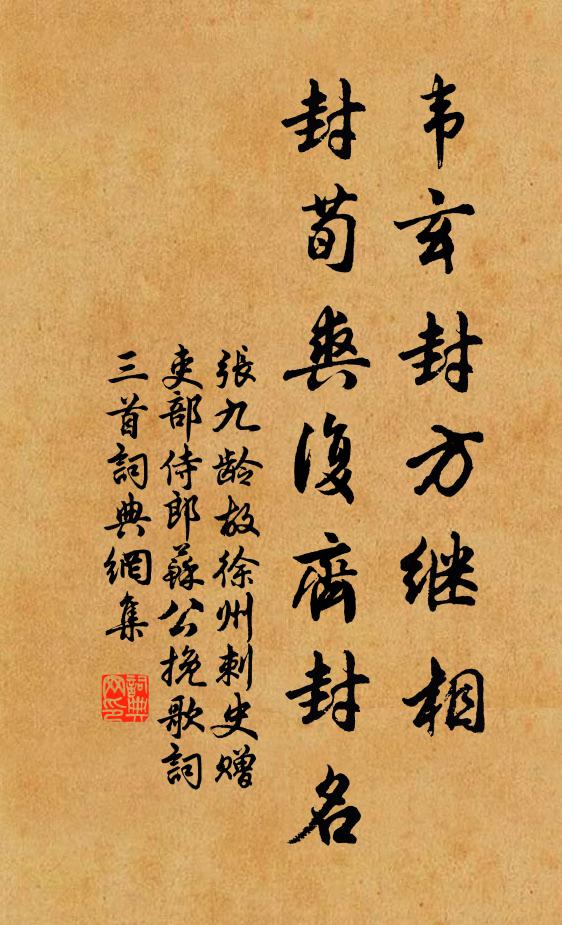 韦玄封方继相
封荀爽復齊封名
張九龄故徐州刺史赠
吏部侍郎蘇公挽歌詞
三首詞典網集
詞典
网印